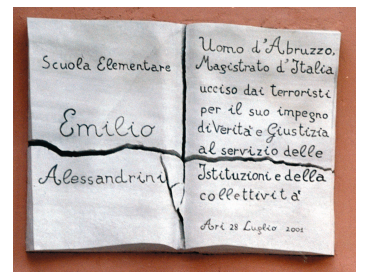 Scuola Elementare
Emilio
Alessandrini
Uomo d'Abruzzo,
Magistrato d'Italia
ucciso dai terroristi
per il suo impegno
di Verità e Giustizia
al servizio delle
Istituzioni e della
collettività
Ari 28 Luglio 2001